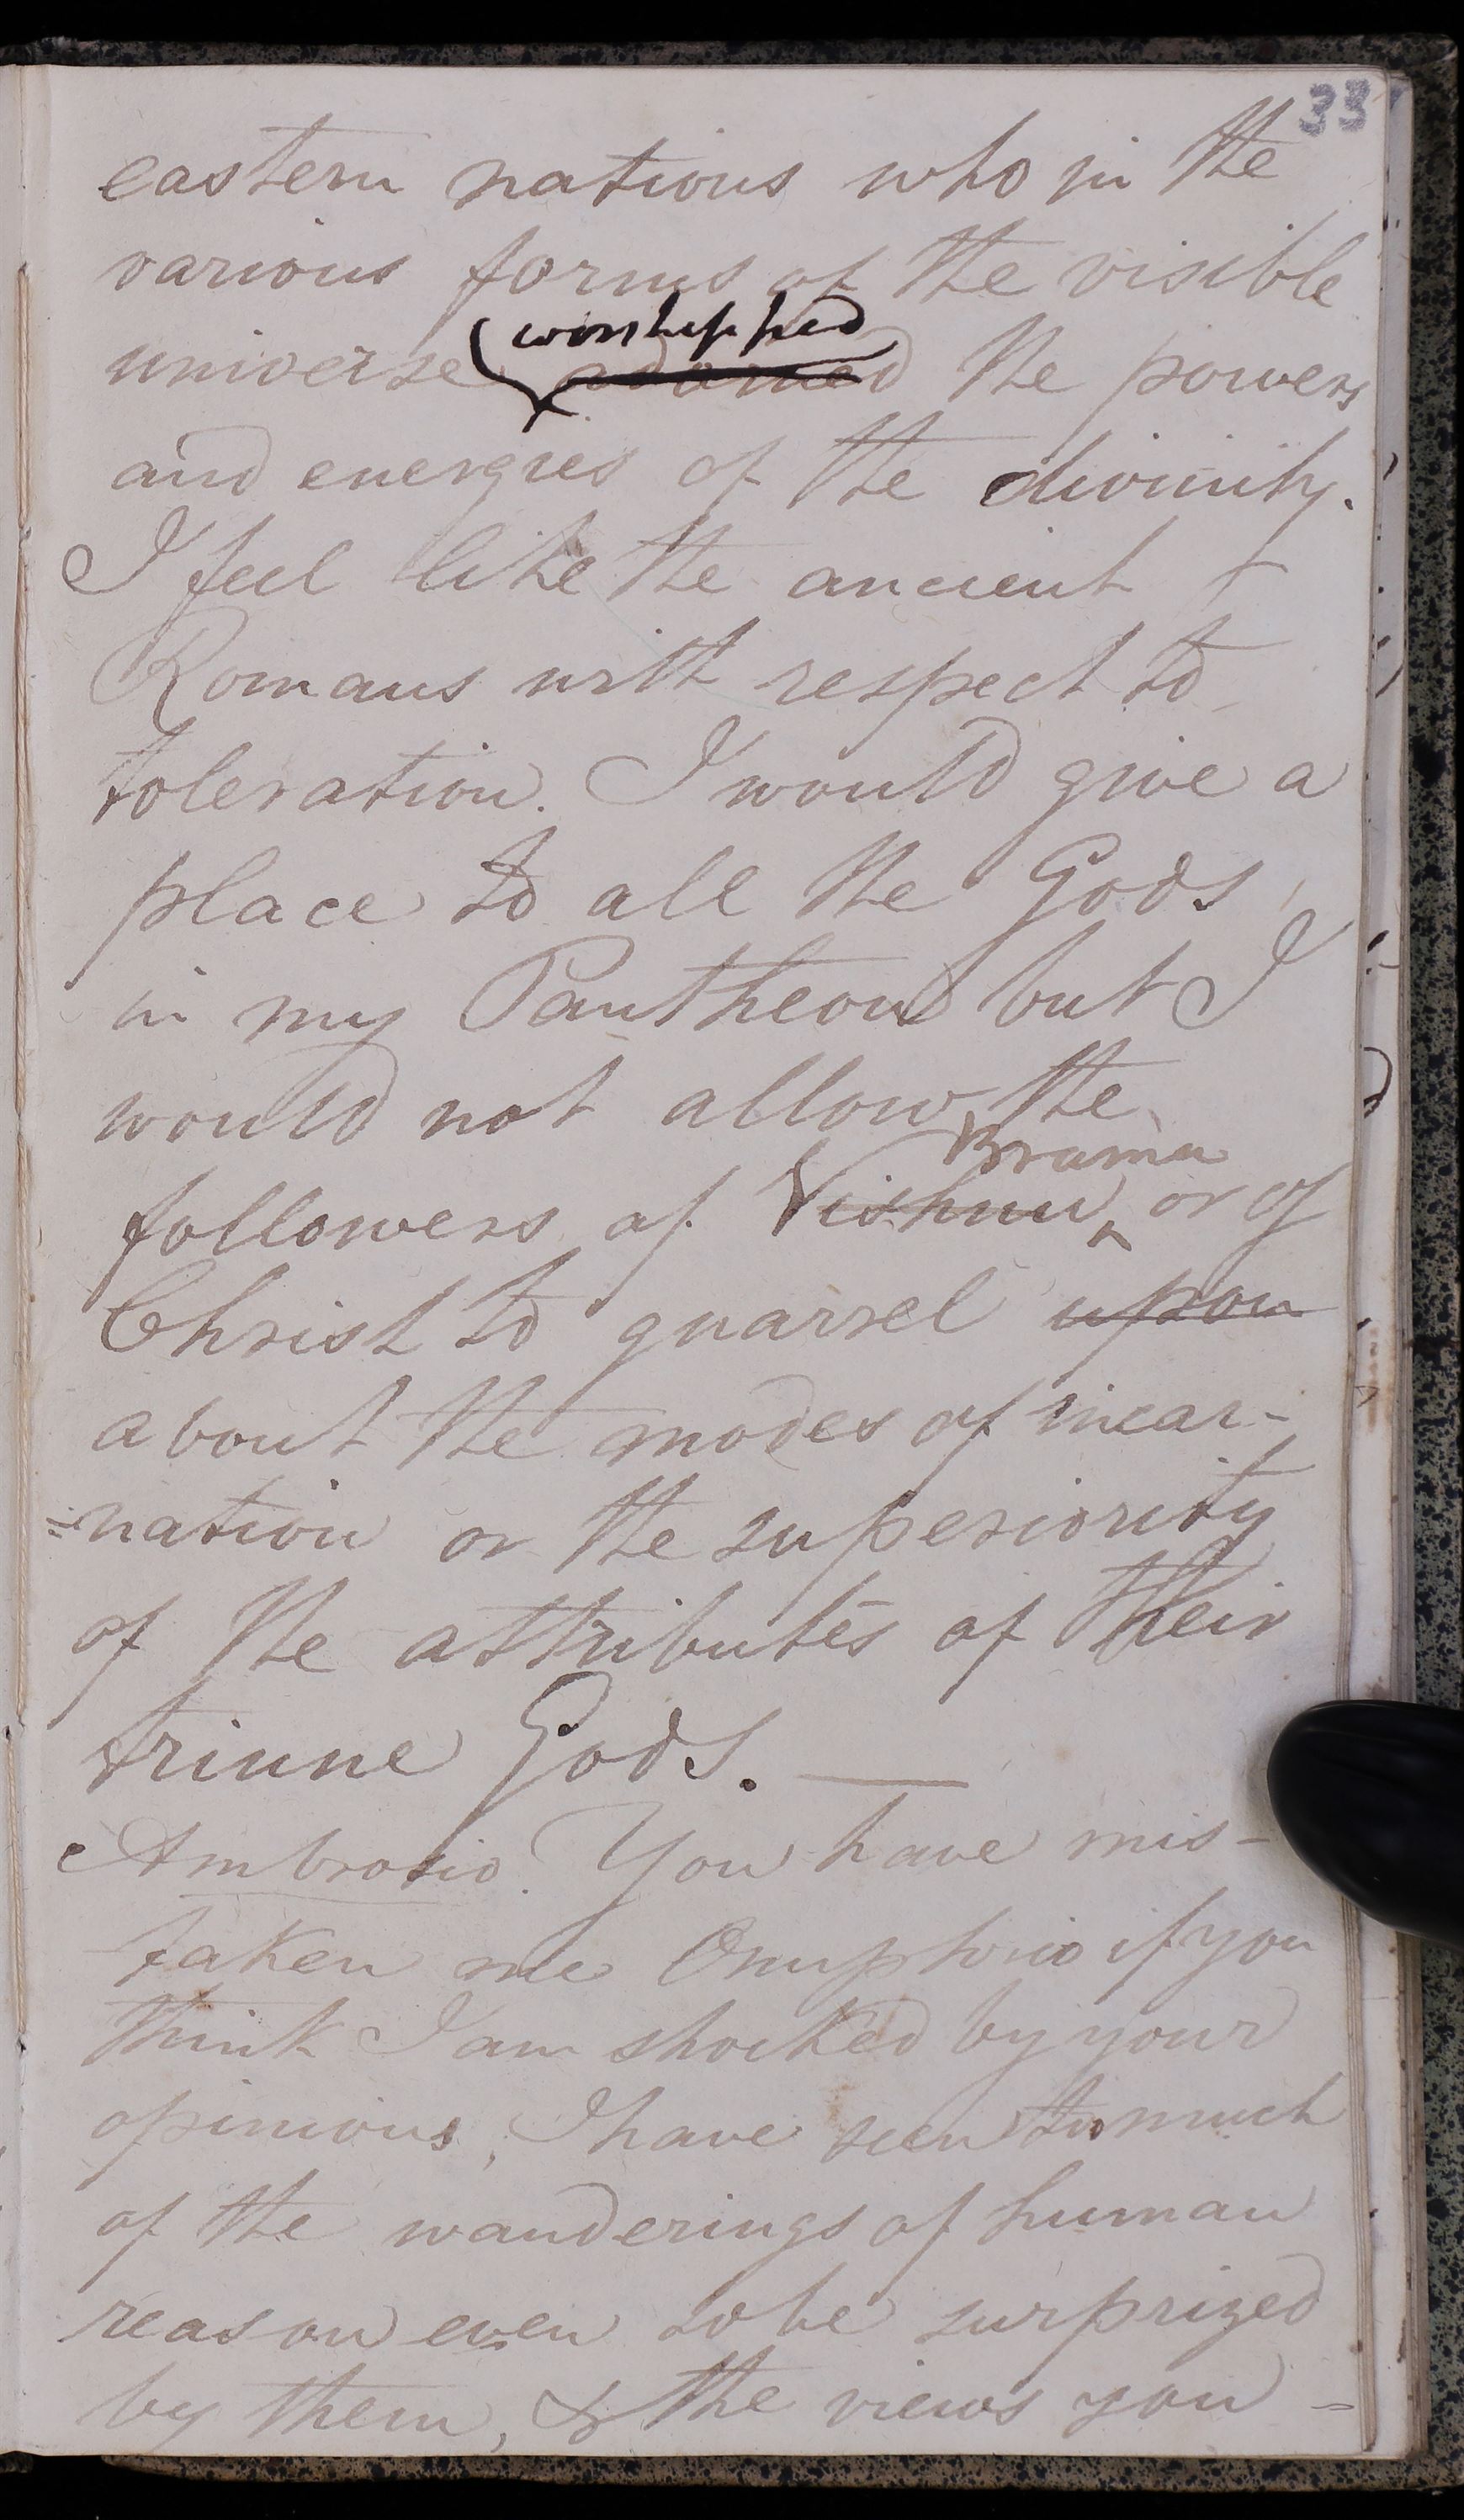 33
eastern nations who in the
various forms of the visible
worshipped
universe adorned the powers
and energies of the divinity.
I feel like the ancient
Romans with respect to
toleration. I would give a
place to all the Gods,
in my Pantheon but I
would not allow the
Brama
followers of Vishnu or of
Christ to quarrel upon
about the modes of incar-
=nation or the superiority
of the attributes of their
triune Gods. —
Ambrosio. You have mis-
taken me Onuphrio if you
think I am shocked by your
opinions, I have seen too much
of the wanderings of human
reason ever to be surprized
by them, & the views you =